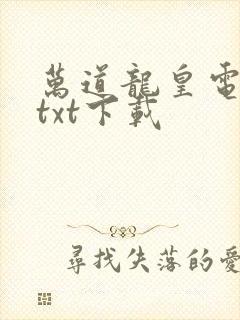 萬道龍皇電
txt下載
尋找失落的愛